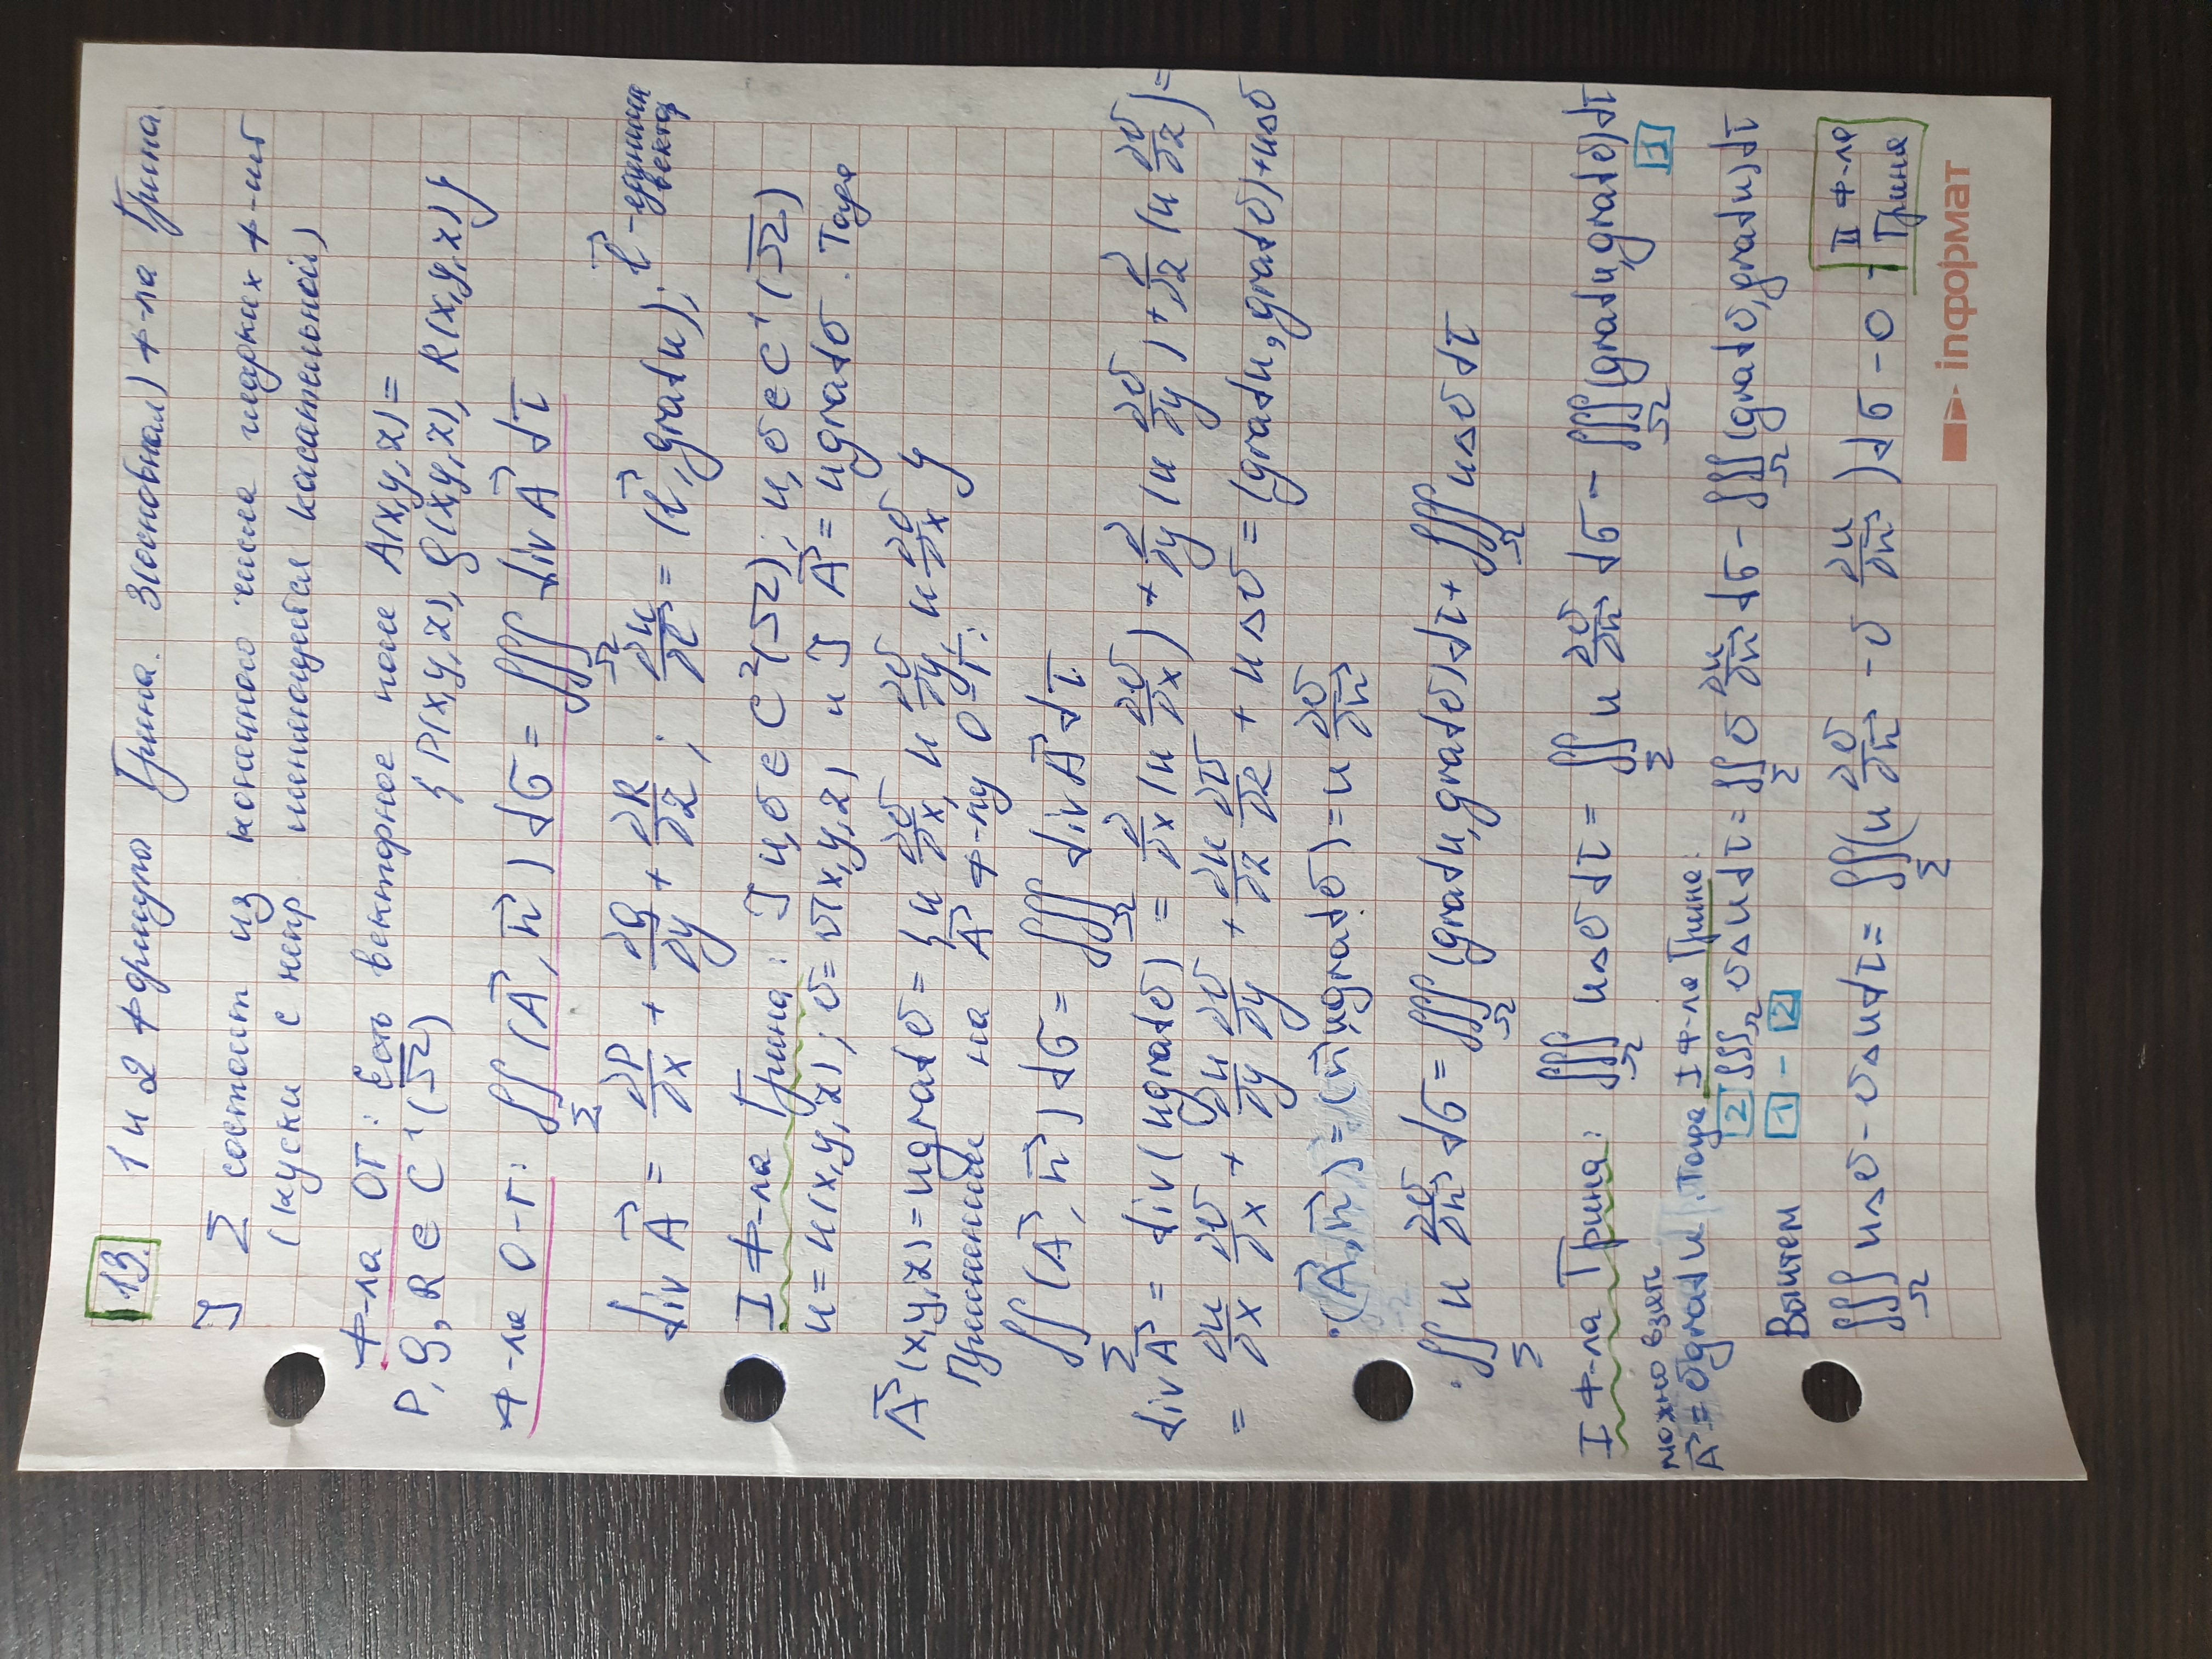 13. 1 и 2 формулы Грина. 3(основная) ф-ла Грина
] Σ состоит из конечного числа гладких ф-ий
(куски с непр. меняющейся касательной)
ф-ла ОГ: Есть векторное поле A(x,y,z)=
P,Q,R ∈ C¹(Ω̅) {P(x,y,z), Q(x,y,z), R(x,y,z)}
ф-ла О-Г: ∬_Σ (A⃗, n⃗) dσ = ∭_Ω div A⃗ dτ
div A⃗ = ∂P/∂x + ∂Q/∂y + ∂R/∂z; ∂u/∂l⃗ = (l⃗, grad u); l⃗ - единич вектор
I ф-ла Грина: ] u,v ∈ C²(Ω); u,v ∈ C¹(Ω̅)
u = u(x,y,z); v = v(x,y,z) и ] A⃗ = u grad v. Тогда
A⃗(x,y,z) = u grad v = {u ∂v/∂x, u ∂v/∂y, u ∂v/∂x}
Применим A⃗ на ф-лу О-Г:
∬_Σ (A⃗, n⃗) dσ = ∭_Ω div A⃗ dτ
div A⃗ = div(u grad v) = ∂/∂x (u ∂v/∂x) + ∂/∂y (u ∂v/∂y) + ∂/∂z (u ∂v/∂z) =
= ∂u/∂x ∂v/∂x + ∂u/∂y ∂v/∂y + ∂u/∂z ∂v/∂z + u Δ v = (grad u, grad v) + u Δ v
(A⃗, n⃗) = (n⃗, u grad v) = u ∂v/∂n⃗
∬_Σ u ∂v/∂n⃗ dσ = ∭_Ω (grad u, grad v) dτ + ∭_Ω u Δ v dτ
I ф-ла Грина: ∭_Ω u Δ v dτ = ∬_Σ u ∂v/∂n⃗ dσ - ∭_Ω (grad u, grad v) dτ 1
можно взять
A⃗ = v grad u. Тогда I ф-ла Грина:
2 ∭_Ω v Δ u dτ = ∬_Σ v ∂u/∂n⃗ dσ - ∭_Ω (grad v, grad u) dτ
Вычтем 1 - 2
∭_Ω u Δ v - v Δ u dτ = ∬_Σ (u ∂v/∂n⃗ - v ∂u/∂n⃗) dσ - 0 - II ф-ла Грина
inформат